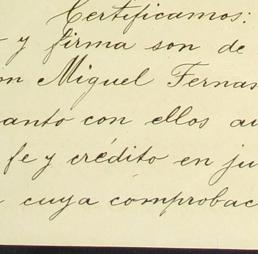 Certificamos:
y firma son de
Miguel Fernan
anto con ellos au
fe y crédito en ju
cuya comprobac